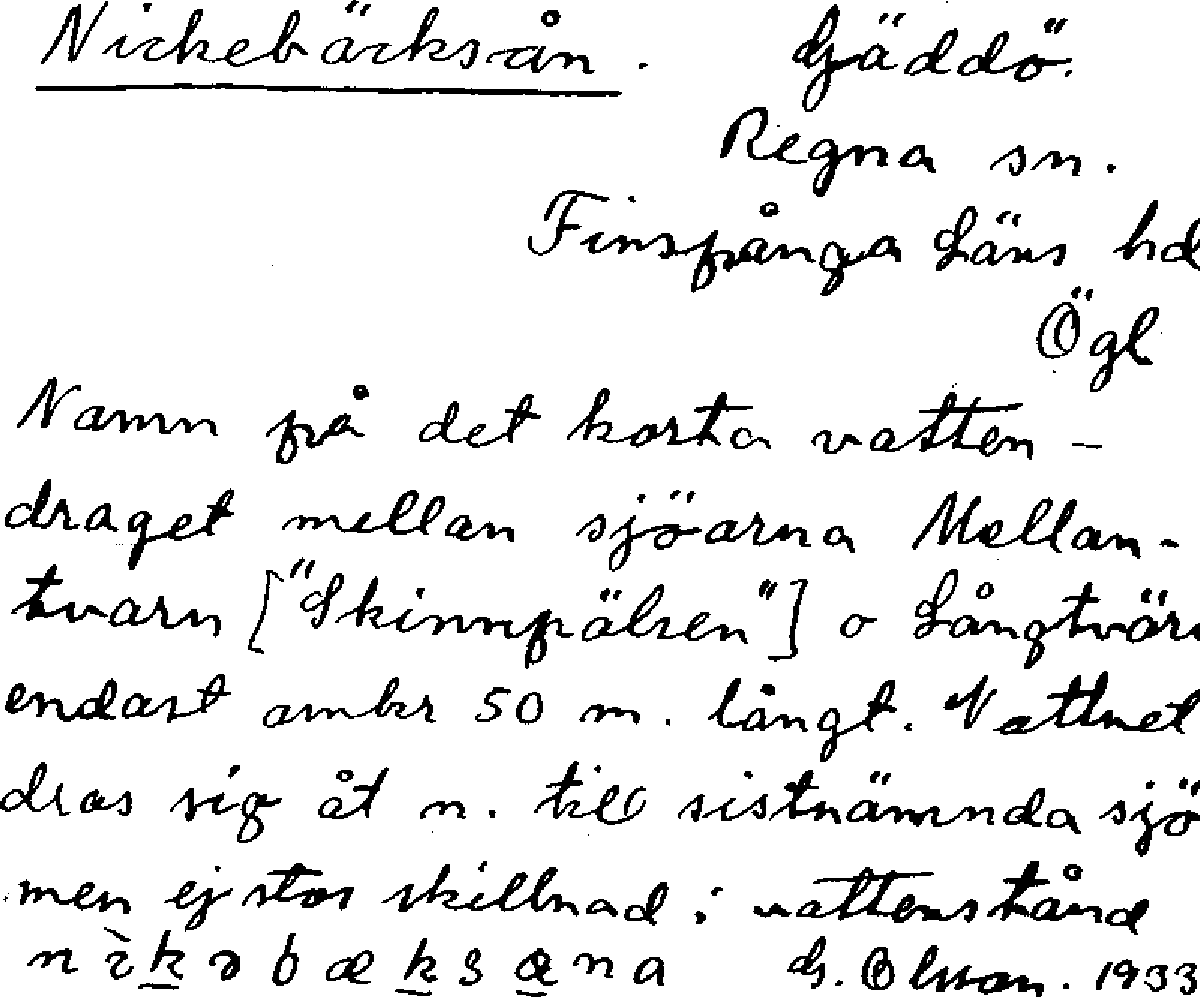 Nickebäcksån. Gäddö.
Regna sn.
Finspånga Läns hd
Ögl
Namn på det korta vatten-
draget mellan sjöarna Mellan-
tvarn ["Skinnpälsen"] o Långtvär
endast omkr 50 m. långt. Vattnet
dras sig åt n. till sistnämnda sjö
men ej stor skillnad i vattenstånd
G. Olsson. 1933